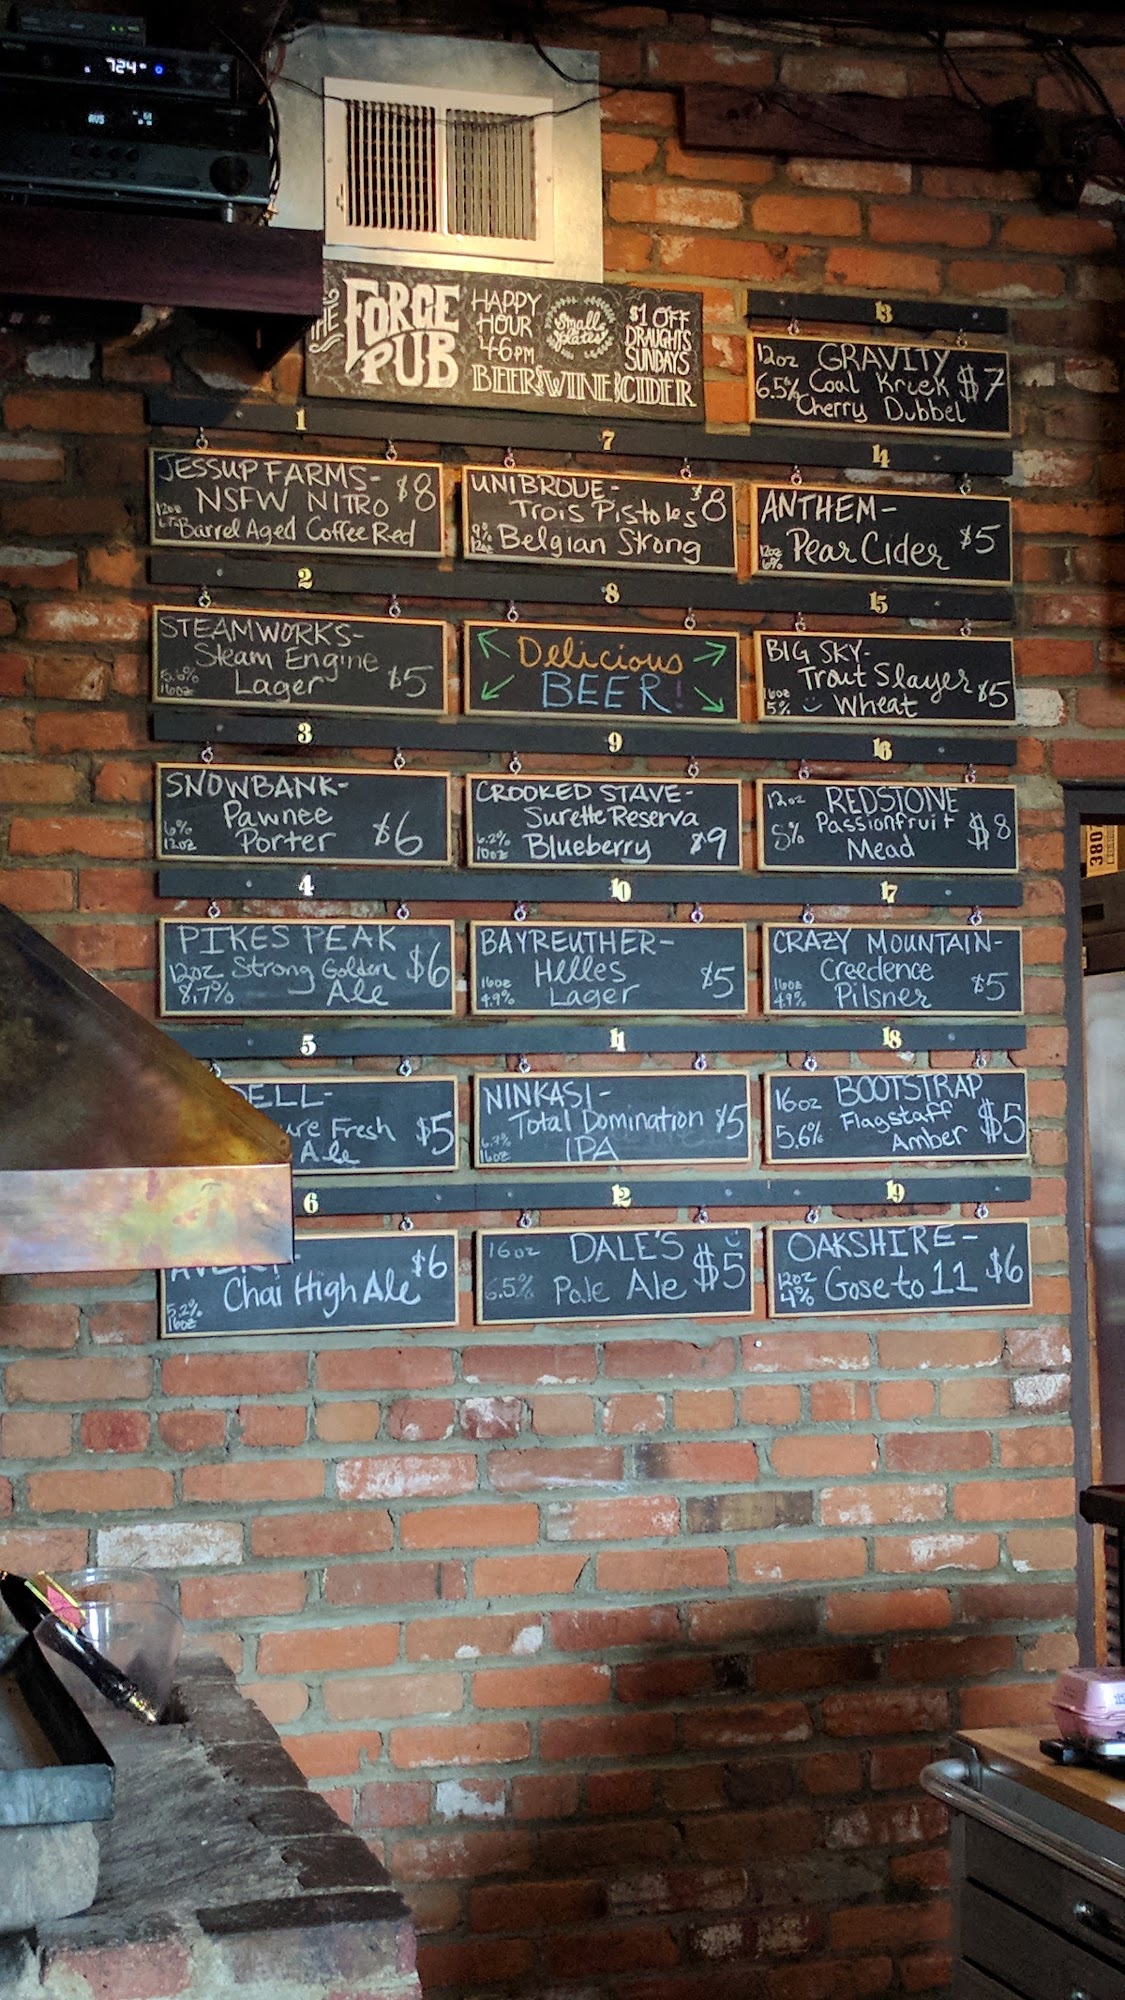 724
THE FORGE PUB
HAPPY HOUR 4-6PM
Small Plates
$1 OFF DRAUGHTS SUNDAYS
BEER & WINE & CIDER
1
JESSUP FARMS-
NSFW NITRO $8
12oz
Barrel Aged Coffee Red
2
STEAMWORKS-
Steam Engine
5.6% Lager $5
16oz
3
SNOWBANK-
Pawnee
6% Porter $6
12oz
4
PIKES PEAK $6
12oz Strong Golden
8.7% Ale
5
DELL-
ure Fresh $5
Ale
6
$6
Chai High Ale
5.2%
16oz
7
UNIBROUE-
Trois Pistoles $8
9% Belgian Strong
12oz
8
Delicious
BEER!
9
CROOKED STAVE-
Surette Reserva
6.2% Blueberry $9
10oz
10
BAYREUTHER-
16oz Helles $5
4.9% Lager
11
NINKASI-
Total Domination $5
6.7% IPA
16oz
12
16oz DALE'S $5
6.5% Pale Ale
13
12oz GRAVITY $7
6.5% Coal Kriek
Cherry Dubbel
14
ANTHEM-
12oz Pear Cider $5
6%
15
BIG SKY-
Trout Slayer $5
16oz
5% Wheat
16
12oz REDSTONE
8% Passionfruit $8
Mead
17
CRAZY MOUNTAIN-
16oz Creedence $5
4.9% Pilsner
18
16oz BOOTSTRAP $5
5.6% Flagstaff
Amber
19
OAKSHIRE-
12oz Gose to 11 $6
4%
380